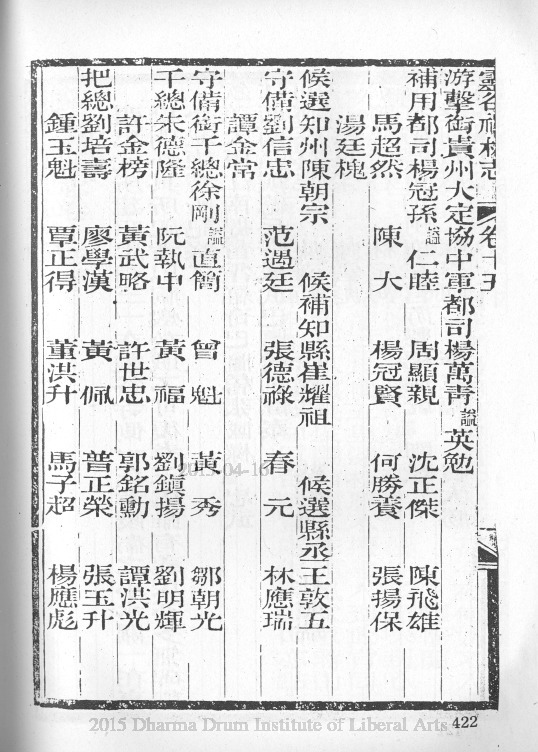 靈谷禪林志 卷十五
游擊銜貴州大定協中軍都司楊萬青諡英勉
補用都司楊冠孫諡仁睦 周顯親 沈正傑 陳飛雄
馬超然 陳大 楊冠賢 何勝養 張揚保
湯廷槐
候選知州陳朝宗 候補知縣崔耀祖 候選縣丞王敦五
守備劉信忠 范遇廷 張德祿 春元 林應瑞
譚金常
守備銜千總徐剛諡直簡 曾魁 黃秀 鄒朝光
千總朱德隆 阮執中 黃福 劉鎮揚 劉明輝
許金榜 黃武略 許世忠 郭銘勳 譚洪光
把總劉培壽 廖學漢 黃佩 普正榮 張玉升
鍾玉魁 覃正得 董洪升 馬子超 楊應彪
2015-04-16
2015 Dharma Drum Institute of Liberal Arts
422